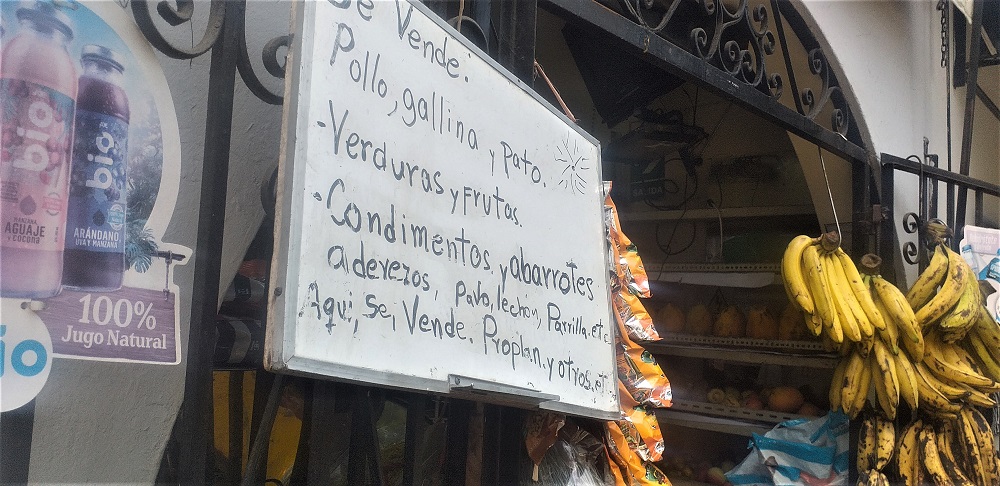 Se Vende:
Pollo, gallina y Pato.
-Verduras y Frutas.
-Condimentos, y abarrotes
aderezos, Pavo, lechon, Parrilla. etc
Aqui, Se, Vende. Proplan. y otros, et
bio
MANZANA
AGUAJE
y COCONA
bio
ARÁNDANO
UVA Y MANZANA
100%
Jugo Natural
io
SALIDA